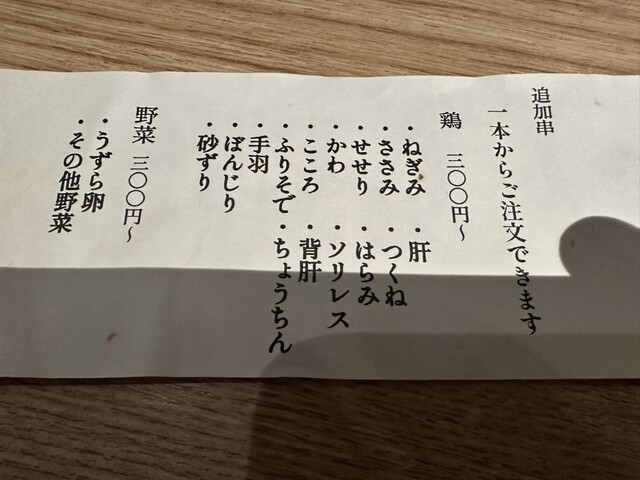 追加串
一本からご注文できます
鶏 三〇〇円～
・ねぎみ ・肝
・ささみ ・つくね
・せせり ・はらみ
・かわ ・ソリレス
・こころ ・背肝
・ふりそで ・ちょうちん
・手羽
・ぼんじり
・砂ずり
野菜 三〇〇円～
・うずら卵
・その他野菜